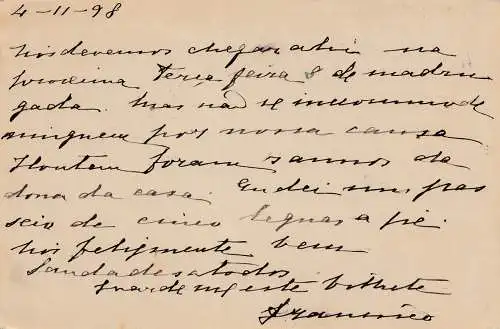 4-11-98
Nós devemos chegar ahi na
proxima terça feira 8 de madru
gada. Mas não se incommode
ninguem por nossa causa
Hontem foram annos da
dona da casa. Eu dei um pas
seio de cinco leguas a pé.
Nós felizmente bem
Saudades a todos
Guardem este bilhete
Francisco